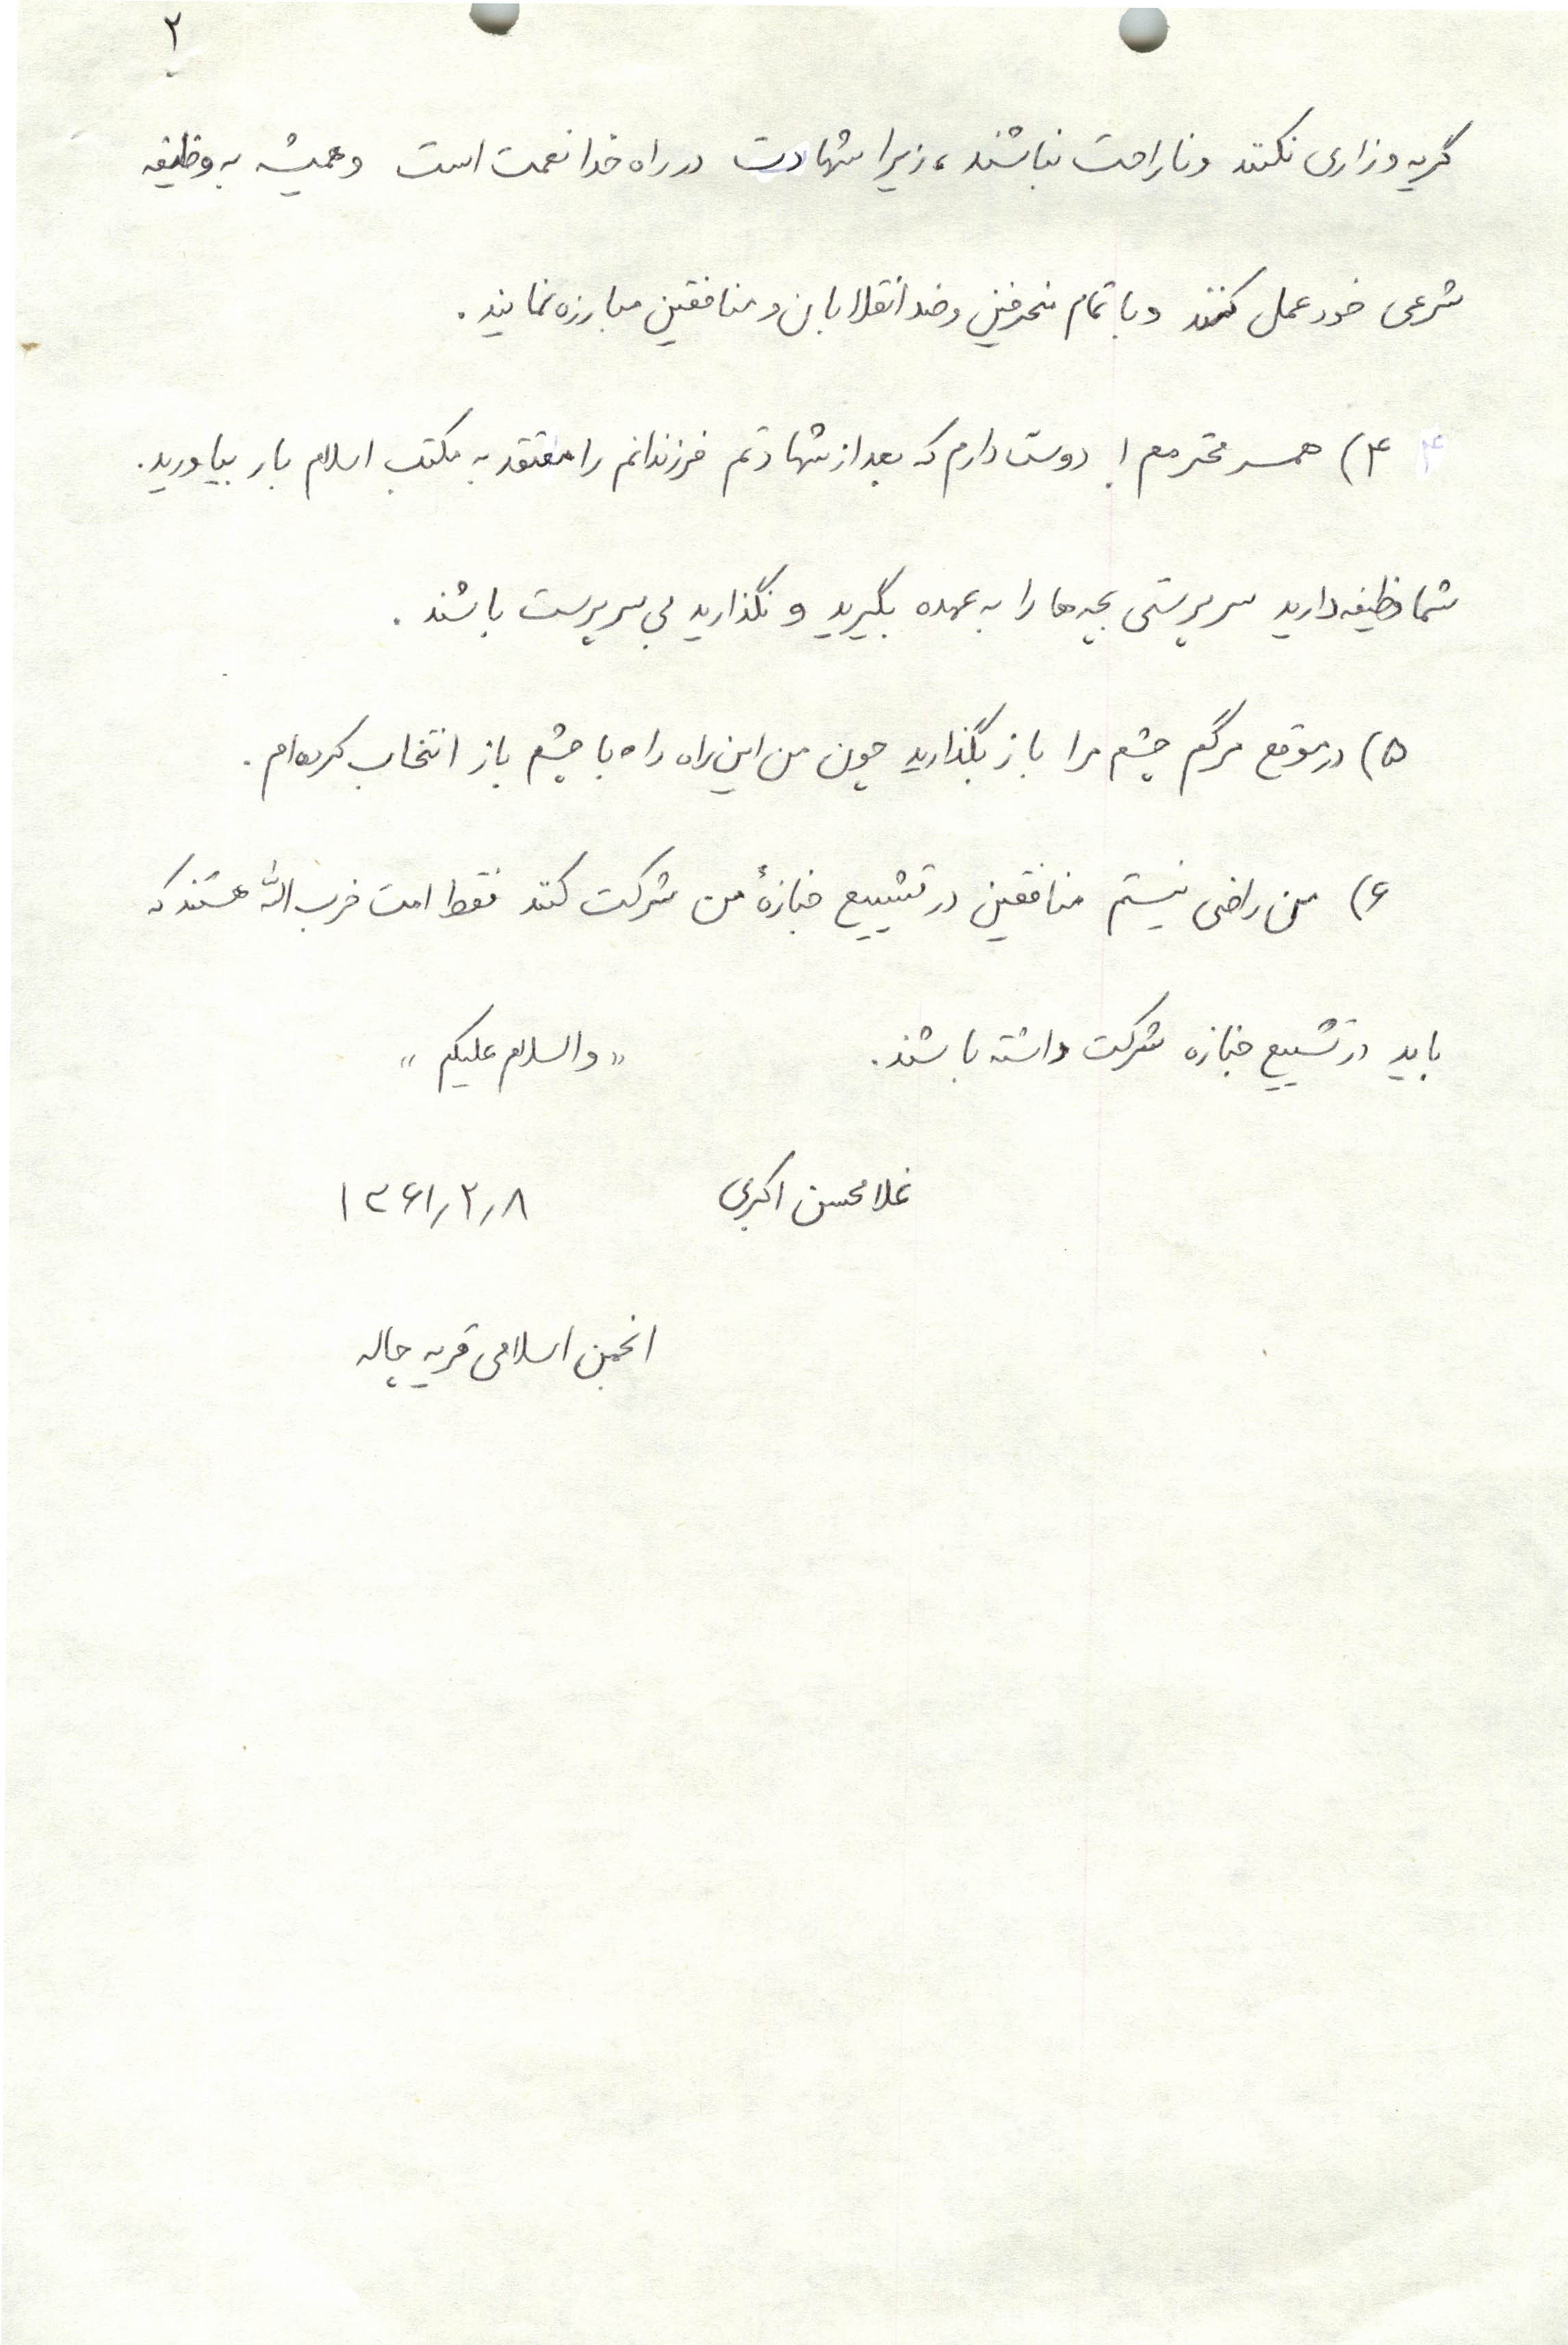 ۲
گریه و زاری نکنند و ناراحت نباشند، زیرا شهادت در راه خدا نعمت است و همیشه به وظیفه
شرعی خود عمل کنند و با تمام منحرفین و ضد انقلابان و منافقین مبارزه نمایند.
۴ ۴) همسر محترمم! دوست دارم که بعد از شهادتم فرزندانم را معتقد به مکتب اسلام بار بیاورید.
شما وظیفه دارید سرپرستی بچه‌ها را به عهده بگیرید و نگذارید بی سرپرست باشند.
۵) در موقع مرگم چشم مرا باز بگذارید چون من این راه را با چشم باز انتخاب کرده‌ام.
۶) من راضی نیستم منافقین در تشییع جنازۀ من شرکت کنند فقط امت حزب الله هستند که
باید در تشییع جنازه شرکت داشته باشند. «والسلام علیکم»
غلامحسن اکبری ۱۳۶۱٫۲٫۸
انجمن اسلامی قریه چاله